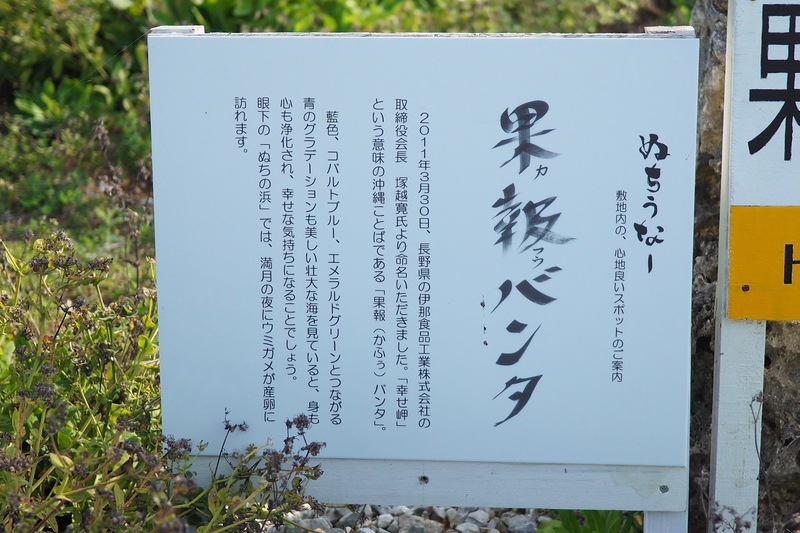 果
H
ぬちうなー
敷地内の、心地良いスポットのご案内
果報バンタ
カ
フウ
2011年3月30日、長野県の伊那食品工業株式会社の
取締役会長 塚越寛氏より命名いただきました。「幸せ岬」
という意味の沖縄ことばである「果報(かふう)バンタ」。
藍色、コバルトブルー、エメラルドグリーンとつながる
青のグラデーションも美しい壮大な海を見ていると、身も
心も浄化され、幸せな気持ちになることでしょう。
眼下の「ぬちの浜」では、満月の夜にウミガメが産卵に
訪れます。